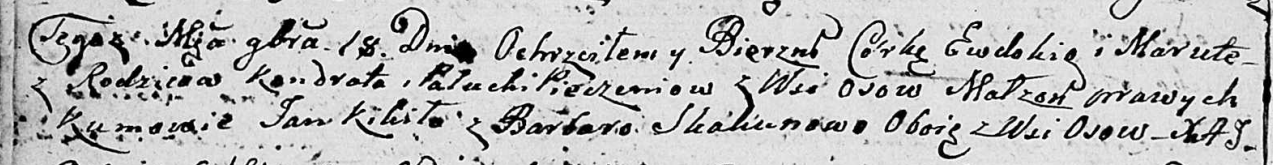 Tegoż Mca 9bra 18. Dnia Ochrzciłem y Bierzm Córkę Ewdokię i Marutę
z Rodziców Kondrata i Pałuchi Pieczeniow z Wsi Osow Małżon prawych
Kumowie Jan Kikiło z Barbaro Skakunowo Oboię z Wsi Osow